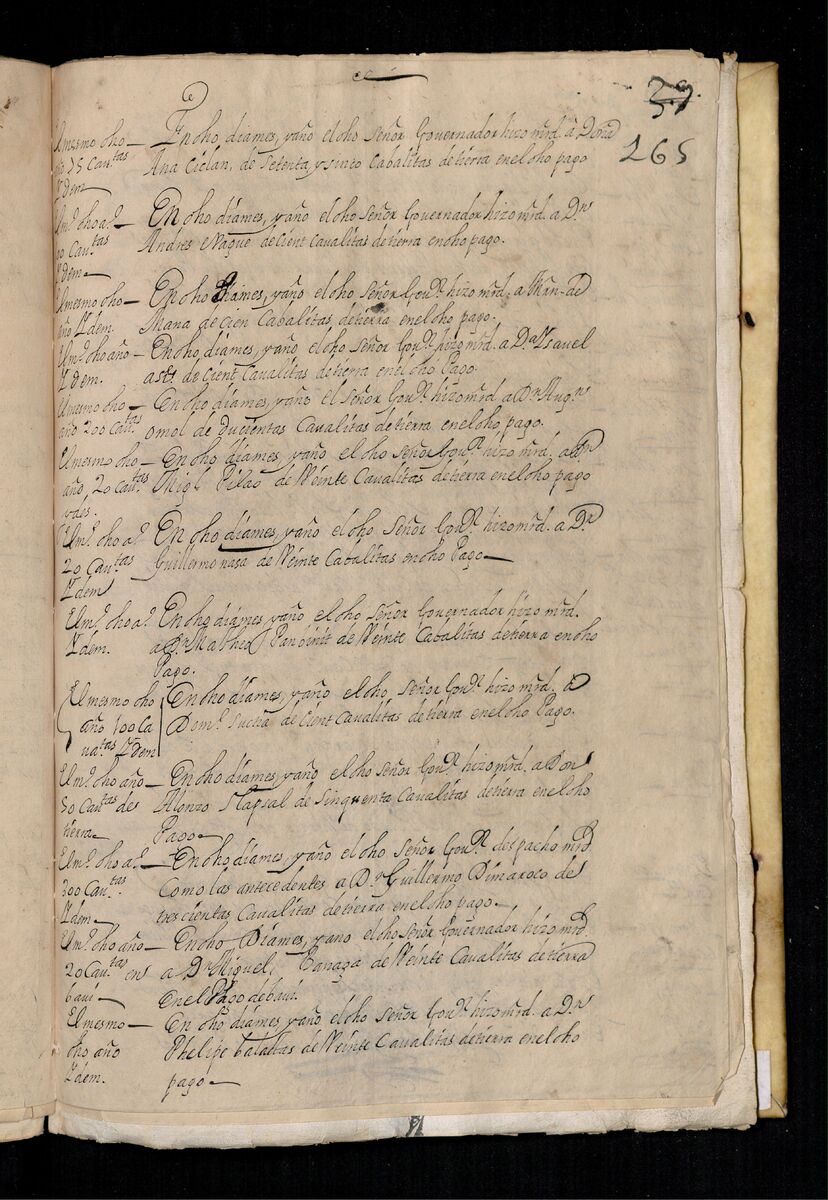 29.
265
El mesmo dho
año 75 Cau.tas
Ydem
En dho día mes, y año el dho Señor Governador hizo mrd. â Doña
Ana Ciclan, de Setenta y sinco Cabalitas de tierra en el dho pago
El m.º dho a.º
Cau.tas
Ydem
En dho día mes, y año el dho Señor Governador hizo mrd. a D.n
Andres de cient Caualitas de tierra en dho pago.
El mesmo dho
año Ydem.
En dho Día mes, y año el dho Señor Gou.or hizo mrd. a Mrn. de
Mana de Cien Cabalitas de tierra en el dho pago.
El m.º dho año
Ydem.
En dho día mes, y año el dho Señor Gou.or hizo mrd. a D.a Ysauel
de Cient Caualitas de tierra en el dho Pago.
El mesmo dho
año 200 Cau.tas
En dho día mes, y año el Señor Gou.or hizo mrd a D.n Aug.n
omol de ducientas Caualitas de tierra en el dho pago.
El mesmo dho
año, 20 Cau.tas
En dho día mes, y año el dho Señor Gou.or hizo mrd. a D.n
Mig.l Pilao de Veinte Caualitas de tierra en el dho pago
El m.º dho a.º
20 Cau.tas
Ydem
En dho día mes, y año el dho Señor Gou.or hizo mrd. a D.n
Guillermo nasa de Veinte Cabalitas en dho Pago
El m.º dho a.º
Ydem.
En dho día mes, y año el dho Señor Governador hizo mrd.
a D.n Matheo Panoinit de Veinte Cabalitas de tierra en dho
Pago.
El mesmo dho
año 100 Ca
ua.tas Ydem
En dho día mes, y año el dho Señor Gou.or hizo mrd. a
Dom.º Sucha de Cient Caualitas de tierra en el dho Pago.
El m.º dho año
50 Cau.tas de
tierra
En dho día mes, y año el dho Señor Gou.or hizo mrd. a Don
Alonzo Slapsal de Sinquenta Caualitas de tierra en el dho
Pago
El m.º dho a.º
300 Cau.tas
Ydem
En dho día mes, y año el dho Señor Gou.or despacho mrd
Como las antecedentes a D.n Guillermo Dimaroco de
trescientas Caualitas de tierra en el dho pago
El m.º dho año
20 Cau.tas en
baui
En dho Día mes, y año el dho Señor Governador hizo mrd
a D.n Miguel Banaga de Veinte Caualitas de tierra
en el Pago de baui.
El mesmo
dho año
Ydem.
En dho día mes, y año el dho Señor Gou.or hizo mrd. a D.n
Phelipe balattas de Veinte Caualitas de tierra en el dho
pago